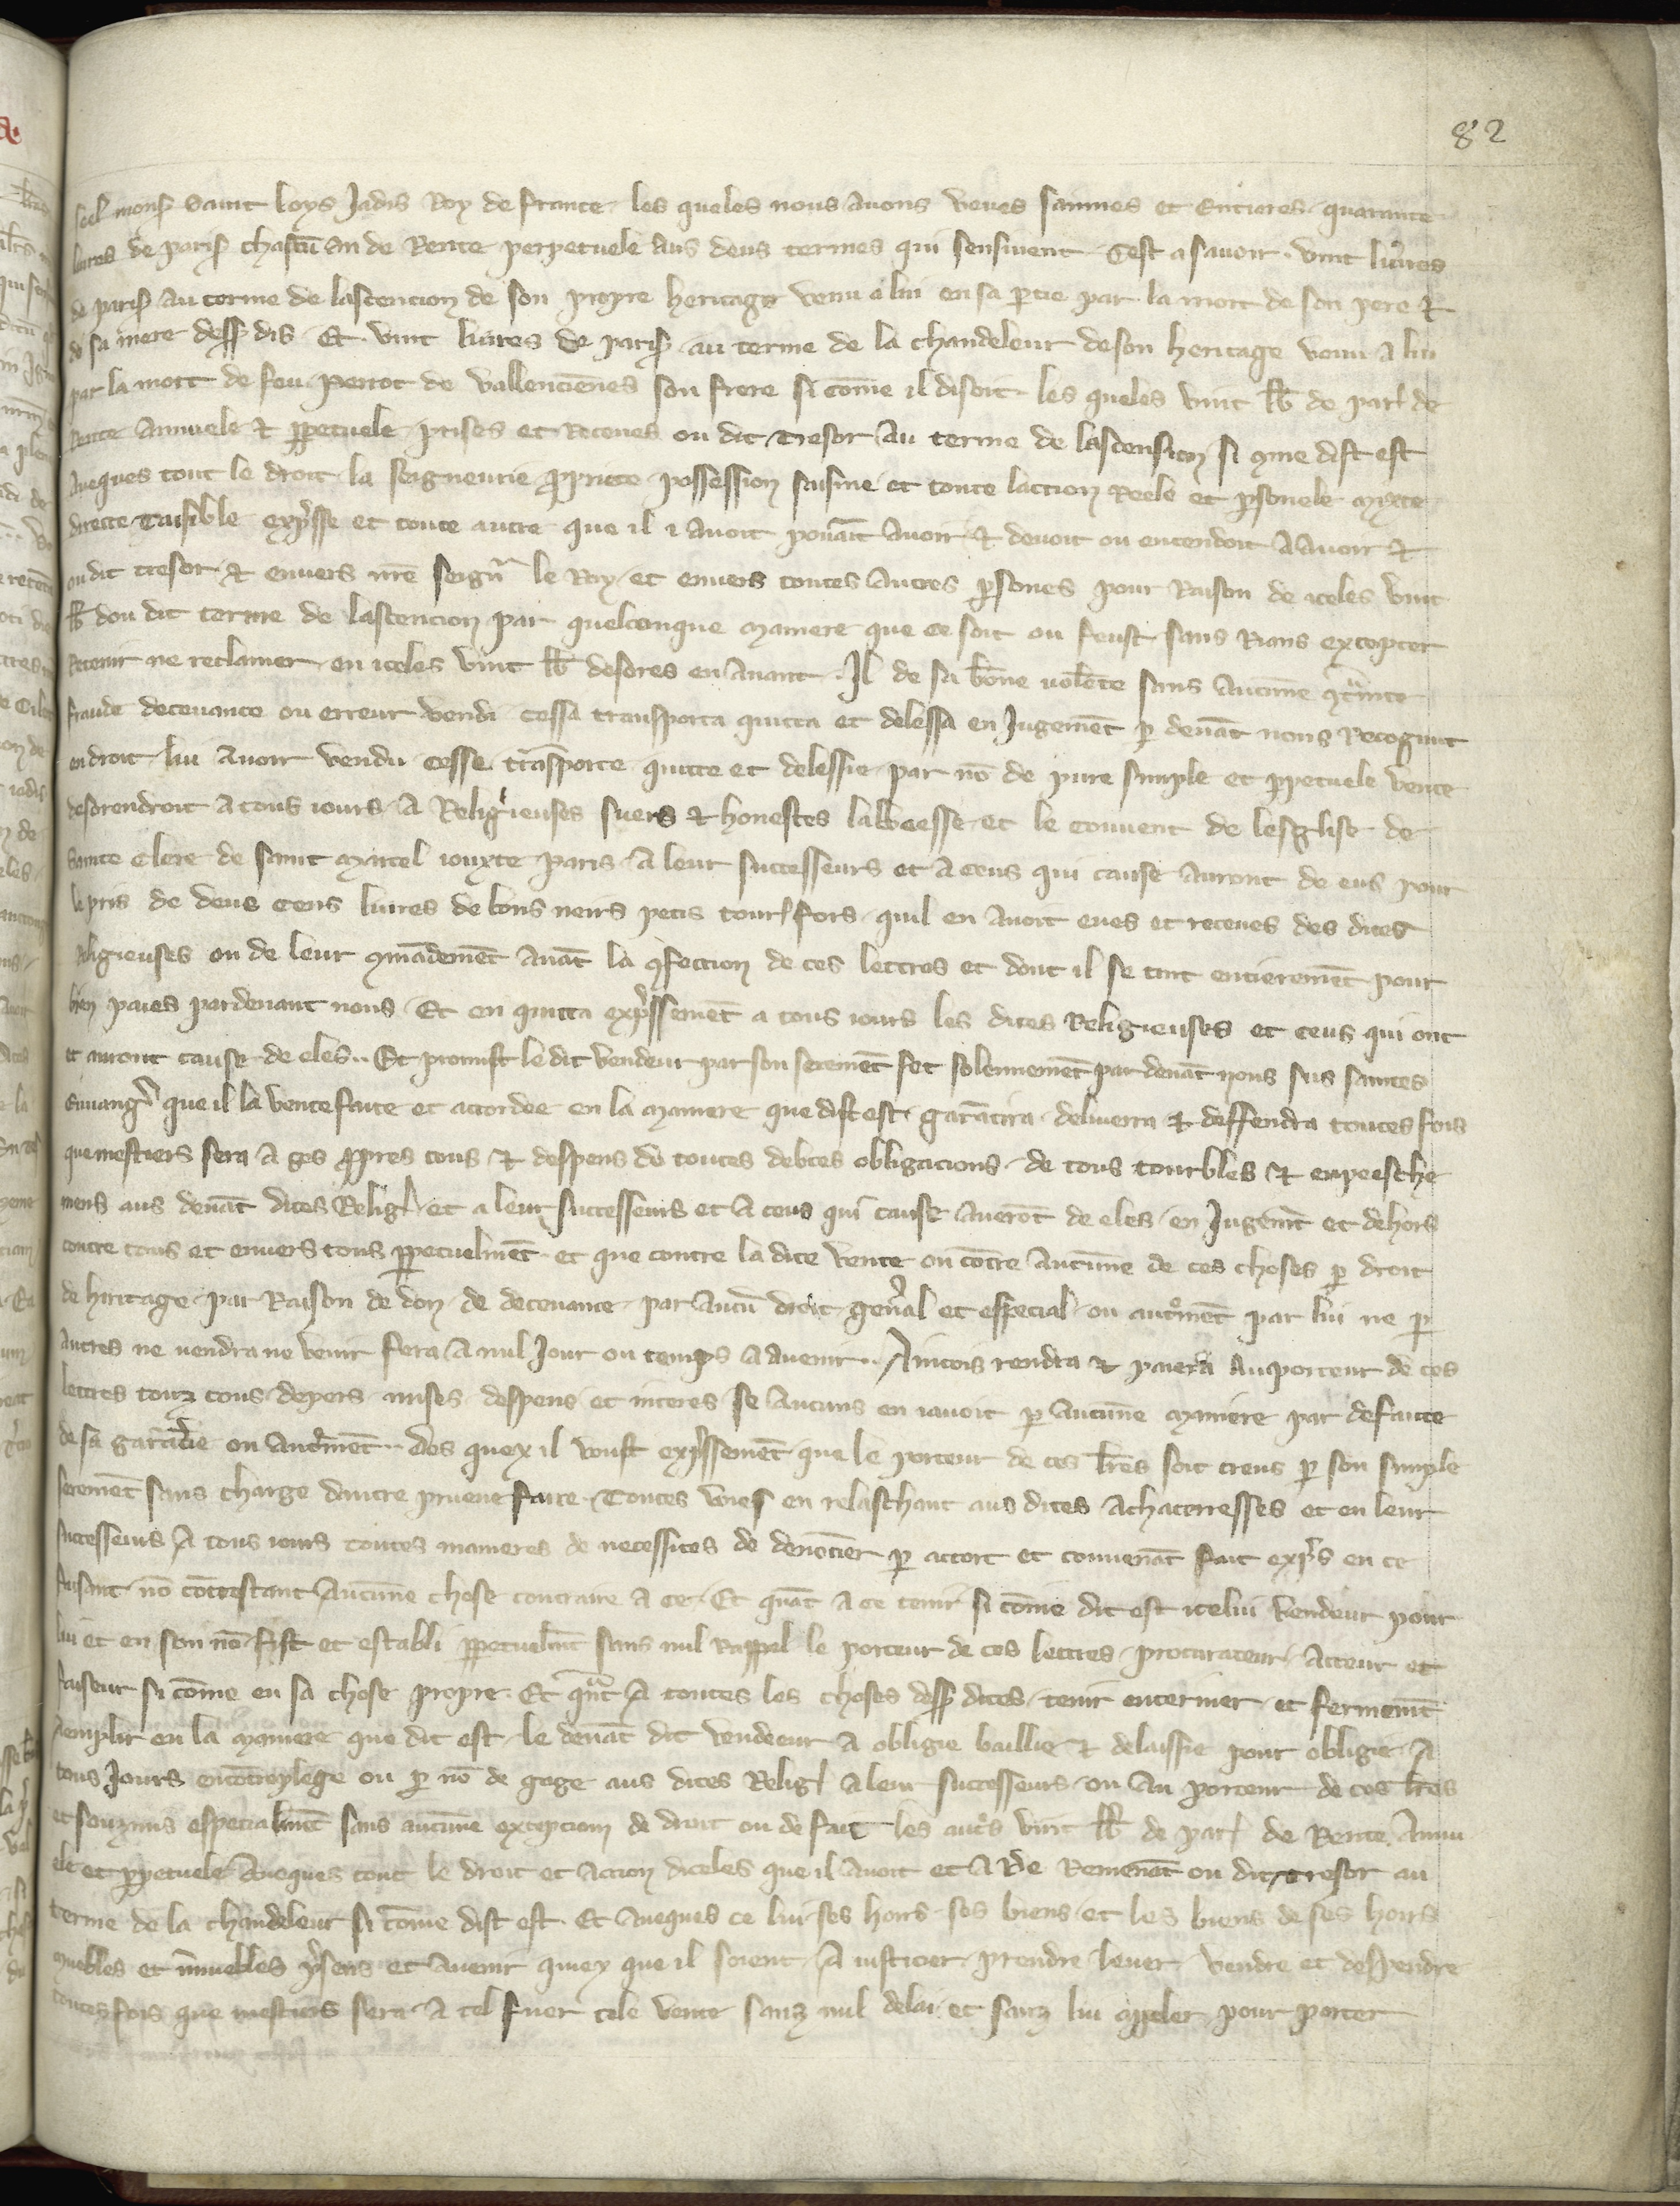 82
seel mons' Saint Loys Jadis Roy de france les queles nous auons veues sainnes et Entieres quarante
liures de paris' chascū an de Rente perpetuele aus deus termes qui sensiuent Cest asauoir vint liures
de paris' au terme de lascencion de son propre heritage venu a lui en sa ptie par la mort de son pere &
de sa mere dess' dis Et vint liures de paris' au terme de la chandeleur deson heritage venu a lui
par la mort de feu perrot de vallenciēnes son frere si cōme il disoit les queles vint lb de par' de
Rente annuele & ppetuele prises et Receues ou dit Tresor au terme de lascension si 9me dist est
aueques tout le droit la seigneurie propriete possession saisine et toute laction Reele et psonele mixte
directe Taisible expsse et toute autre que il i auoit pouāit auoir & deuoit ou entendoit a auoir &
ou dit tresor & enuers nr̄e seign' le Roy et enuers toutes autres psones pour Raison de iceles vint
lb dou dit terme de lascencion par quelconque maniere que ce soit ou feust sans Riens excepter
Retenir ne reclamer en iceles vint lb desores en auant Il de sa bōne volēte sans aucune 9trainte
fraude deceuance ou erreur vendi cessa transporta quitta et delessa en Jugemēt p deuāt nous Recognut
endroit lui auoir vendu cesse trāsporte quitte et delessie par nō de pure simple et ppetuele vente
desorendroit a tous iours a Religieuses suers & honestes labbeesse et le conuent de lesglise de
sainte Clere de saint marcel iouxte paris a leur successeurs et a ceus qui cause auront de eus pour
le pris de deus cens liures de bons neirs petis tour' fors quil en auoit eues et receues des dites
Religieuses ou de leur 9mādemēt auāt la 9fection de ces lettres et dont il se tint entieremēt pour
bien paies pardeuant nous Et en quitta expssemēt a tous iours les dites Religieuses et ceus qui ont
et auront cause de eles Et promist le dit vendeur par son seremēt fet solennemēt par deuāt nous sus saintes
Euuangl' que il la vente faite et accordee en la maniere que dist est garātira deliuerra & deffendra toutes fois
que mestiers sera a ses propres cous & despens de toutes debtes obligacions de tous tourbles & enpeesche
mens aus deuāt dites Relig' et a leur successeurs et a ceus qui cause auerōt de eles en Jugemt et dehors
contre tous et enuers tous ppetuelmēt et que contre la dite vente ou cōtre aucune de ces choses p droit
de hiritage par Raison de don de deceuance par aucū droit gen'al et especial ou autremēt par lui ne p
autres ne vendra ne venir fera a nul Jour ou temps a auenir Aincois rendra & paiera au porteur de ces
lettres touz cous depers mises despens et interes se aucuns en iauoit p aucune maniere par defaute
de sa garādie ou autremēt des quex il voust expssemēt que le porteur de ces lr̄es soit creus p son simple
seremēt sans charge dautre prueue faire Toutes voies en relaschant aus dites achaterresses et en leur
successeurs a tous iours toutes manieres de necessites de denōcier p accort et conuenāt fait expres en ce
faisant nō cōtrestant aucune chose contraire a ce Et quāt a ce tenir si cōme dit est icelui vendeur pour
lui et en son nō fist et establi ppetuelmt sans nul Rappal le porteur de ces lettres procurateur acteur et
faiseur si cōme en sa chose propre Et quāt a toutes les choses dess' dites tenir enteriner et fermemt
aemplir en la maniere que dit est le deuāt dit vendeeur a obligie baillie & delaissie pour obligie a
tous Jours encōtreplege ou p nō de gage aus dites Relig' a leur successeurs ou au porteur de ces lr̄es
et souzmis especialmēt sans aucune excepcion de droit ou de fait les autres vint lb de par' de Rente annu
ele et ppetuele aueques tout le droit et action diceles que il auoit et a de Remenāt ou dit tresor au
terme de la chandeleur si cōme dist est Et aueques ce lui ses hoirs ses biens et les biens de ses hoirs
muebles et nō muebles psens et auenir quex que il soient a iusticier prendre leuer vendre et despendre
toutes fois que mestiers sera a tel fuer tele vente sanz nul delai et sanz lui appeler pour porter